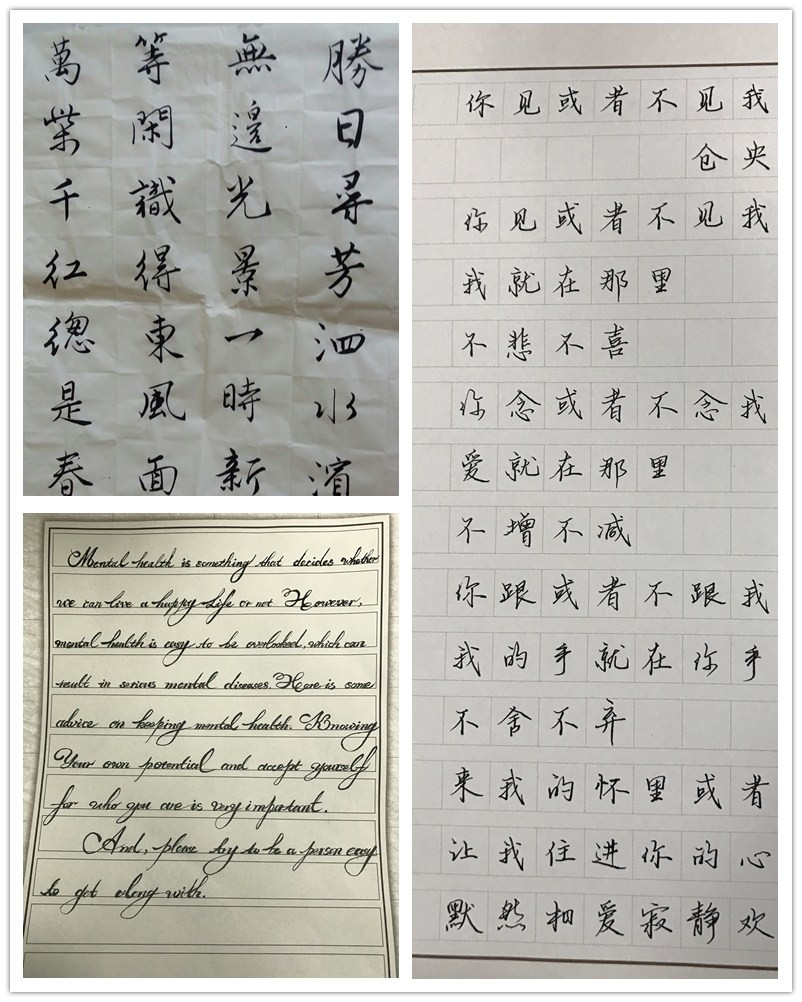 勝日尋芳泗水濱
無邊光景一時新
等閑識得東風面
萬紫千红總是春
Mental health is something that decides whether
we can live a happy Life or not However,
mental health is easy to be overlooked, which can
result in serious mental diseases. Here is some
advice on keeping mental health. Knowing
Your own potential and accept yourself
for who you are is very important.
And, please try to be a person easy
to get along with.
你见或者不见我
仓央
你见或者不见我
我就在那里
不悲不喜
你念或者不念我
爱就在那里
不增不减
你跟或者不跟我
我的手就在你手
不舍不弃
来我的怀里或者
让我住进你的心
默然相爱寂静欢